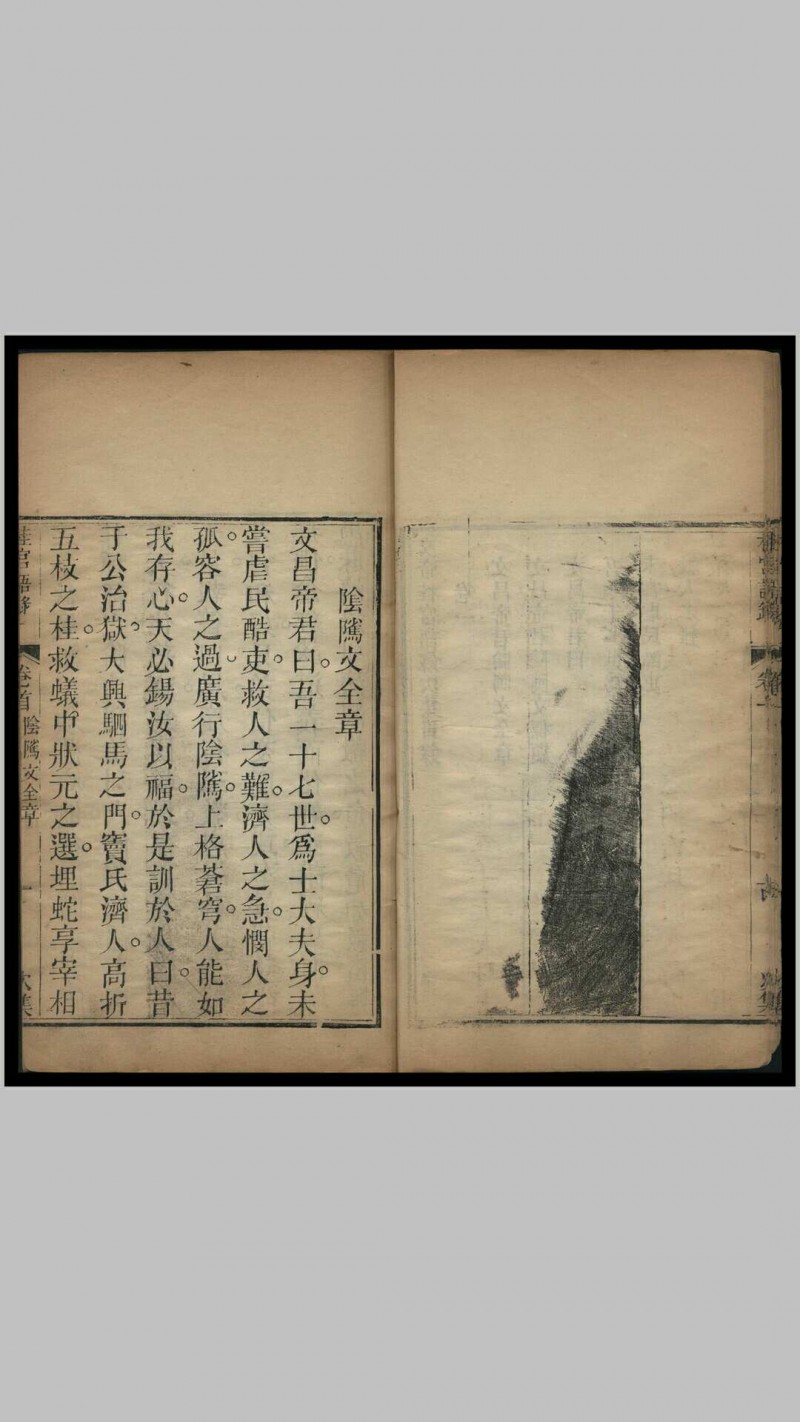 陰隲文全章
文昌帝君曰。吾一十七世。爲士大夫身。未
嘗虐民酷吏。救人之難。濟人之急。憫人之
孤。容人之過。廣行陰隲。上格蒼穹。人能如
我存心。天必錫汝以福。於是訓於人曰。昔
于公治獄。大興駟馬之門。竇氏濟人。高折
五枝之桂。救蟻中狀元之選。埋蛇享宰相
桂宮語
卷之首
陰隲文全章
一